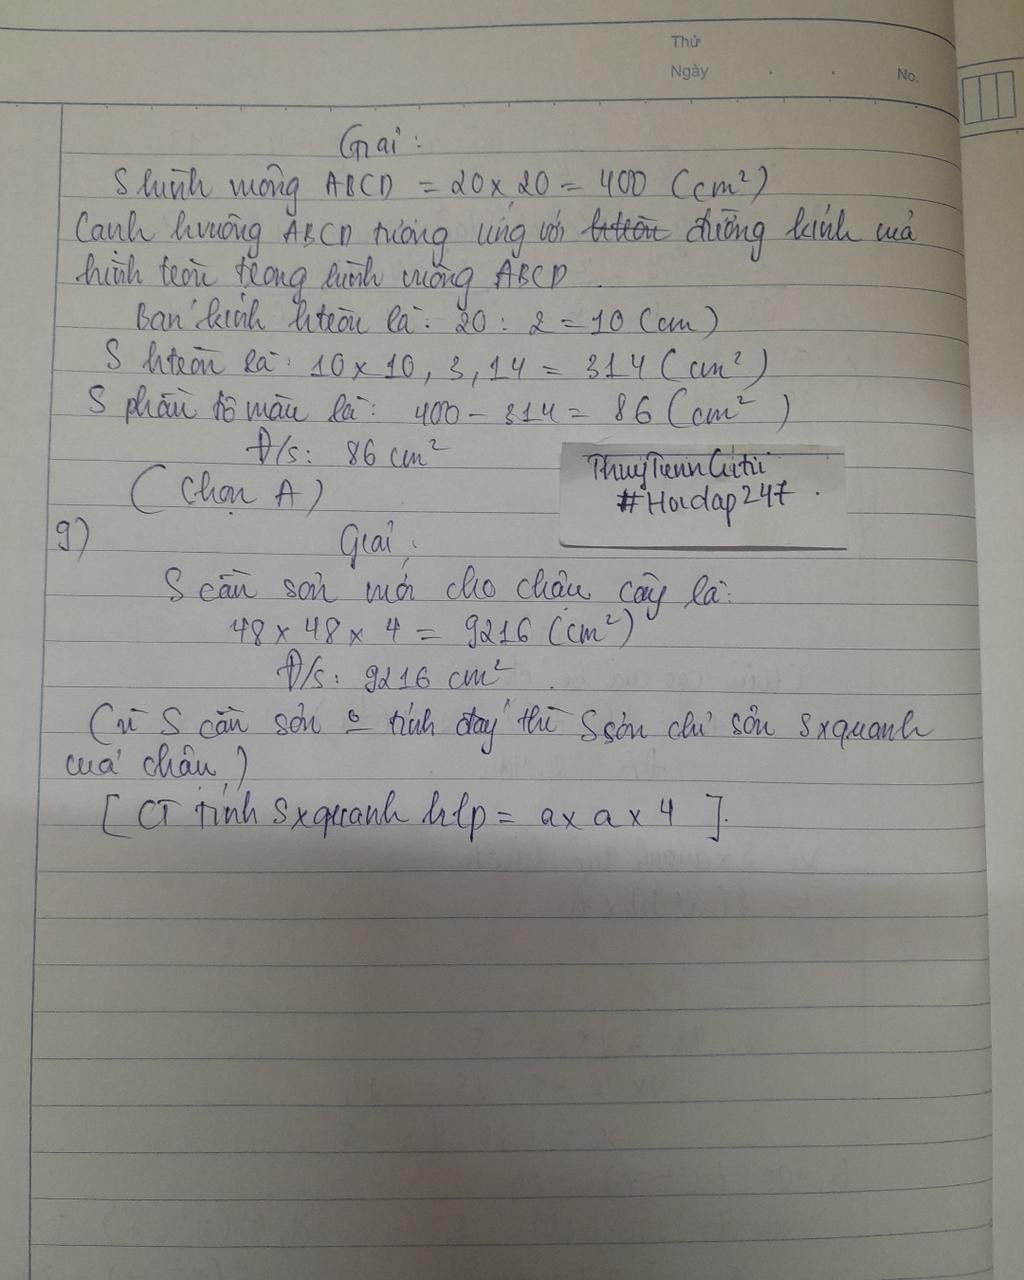 Thứ
Ngày . . No.
Giải:
S hình vuông ABCD = 20 x 20 = 400 (cm²)
Cạnh hvuông ABCD tương ứng với htròn đường kính của
hình tròn trong hình vuông ABCD.
Bán kính htròn là: 20 : 2 = 10 (cm)
S htròn là: 10 x 10, 3,14 = 314 (cm²)
S phần tô màu là: 400 - 314 = 86 (cm²)
Đ/s: 86 cm²
(Chọn A)
ThuyTienn
#Hoidap247.
9)
Giải:
S cần sơn mới cho chậu cây là:
48 x 48 x 4 = 9216 (cm²)
Đ/s: 9216 cm².
(Vì S cần sơn o tính đáy thì S sơn chỉ sơn Sxquanh
của chậu)
[CT tính Sxquanh hlp = a x a x 4].